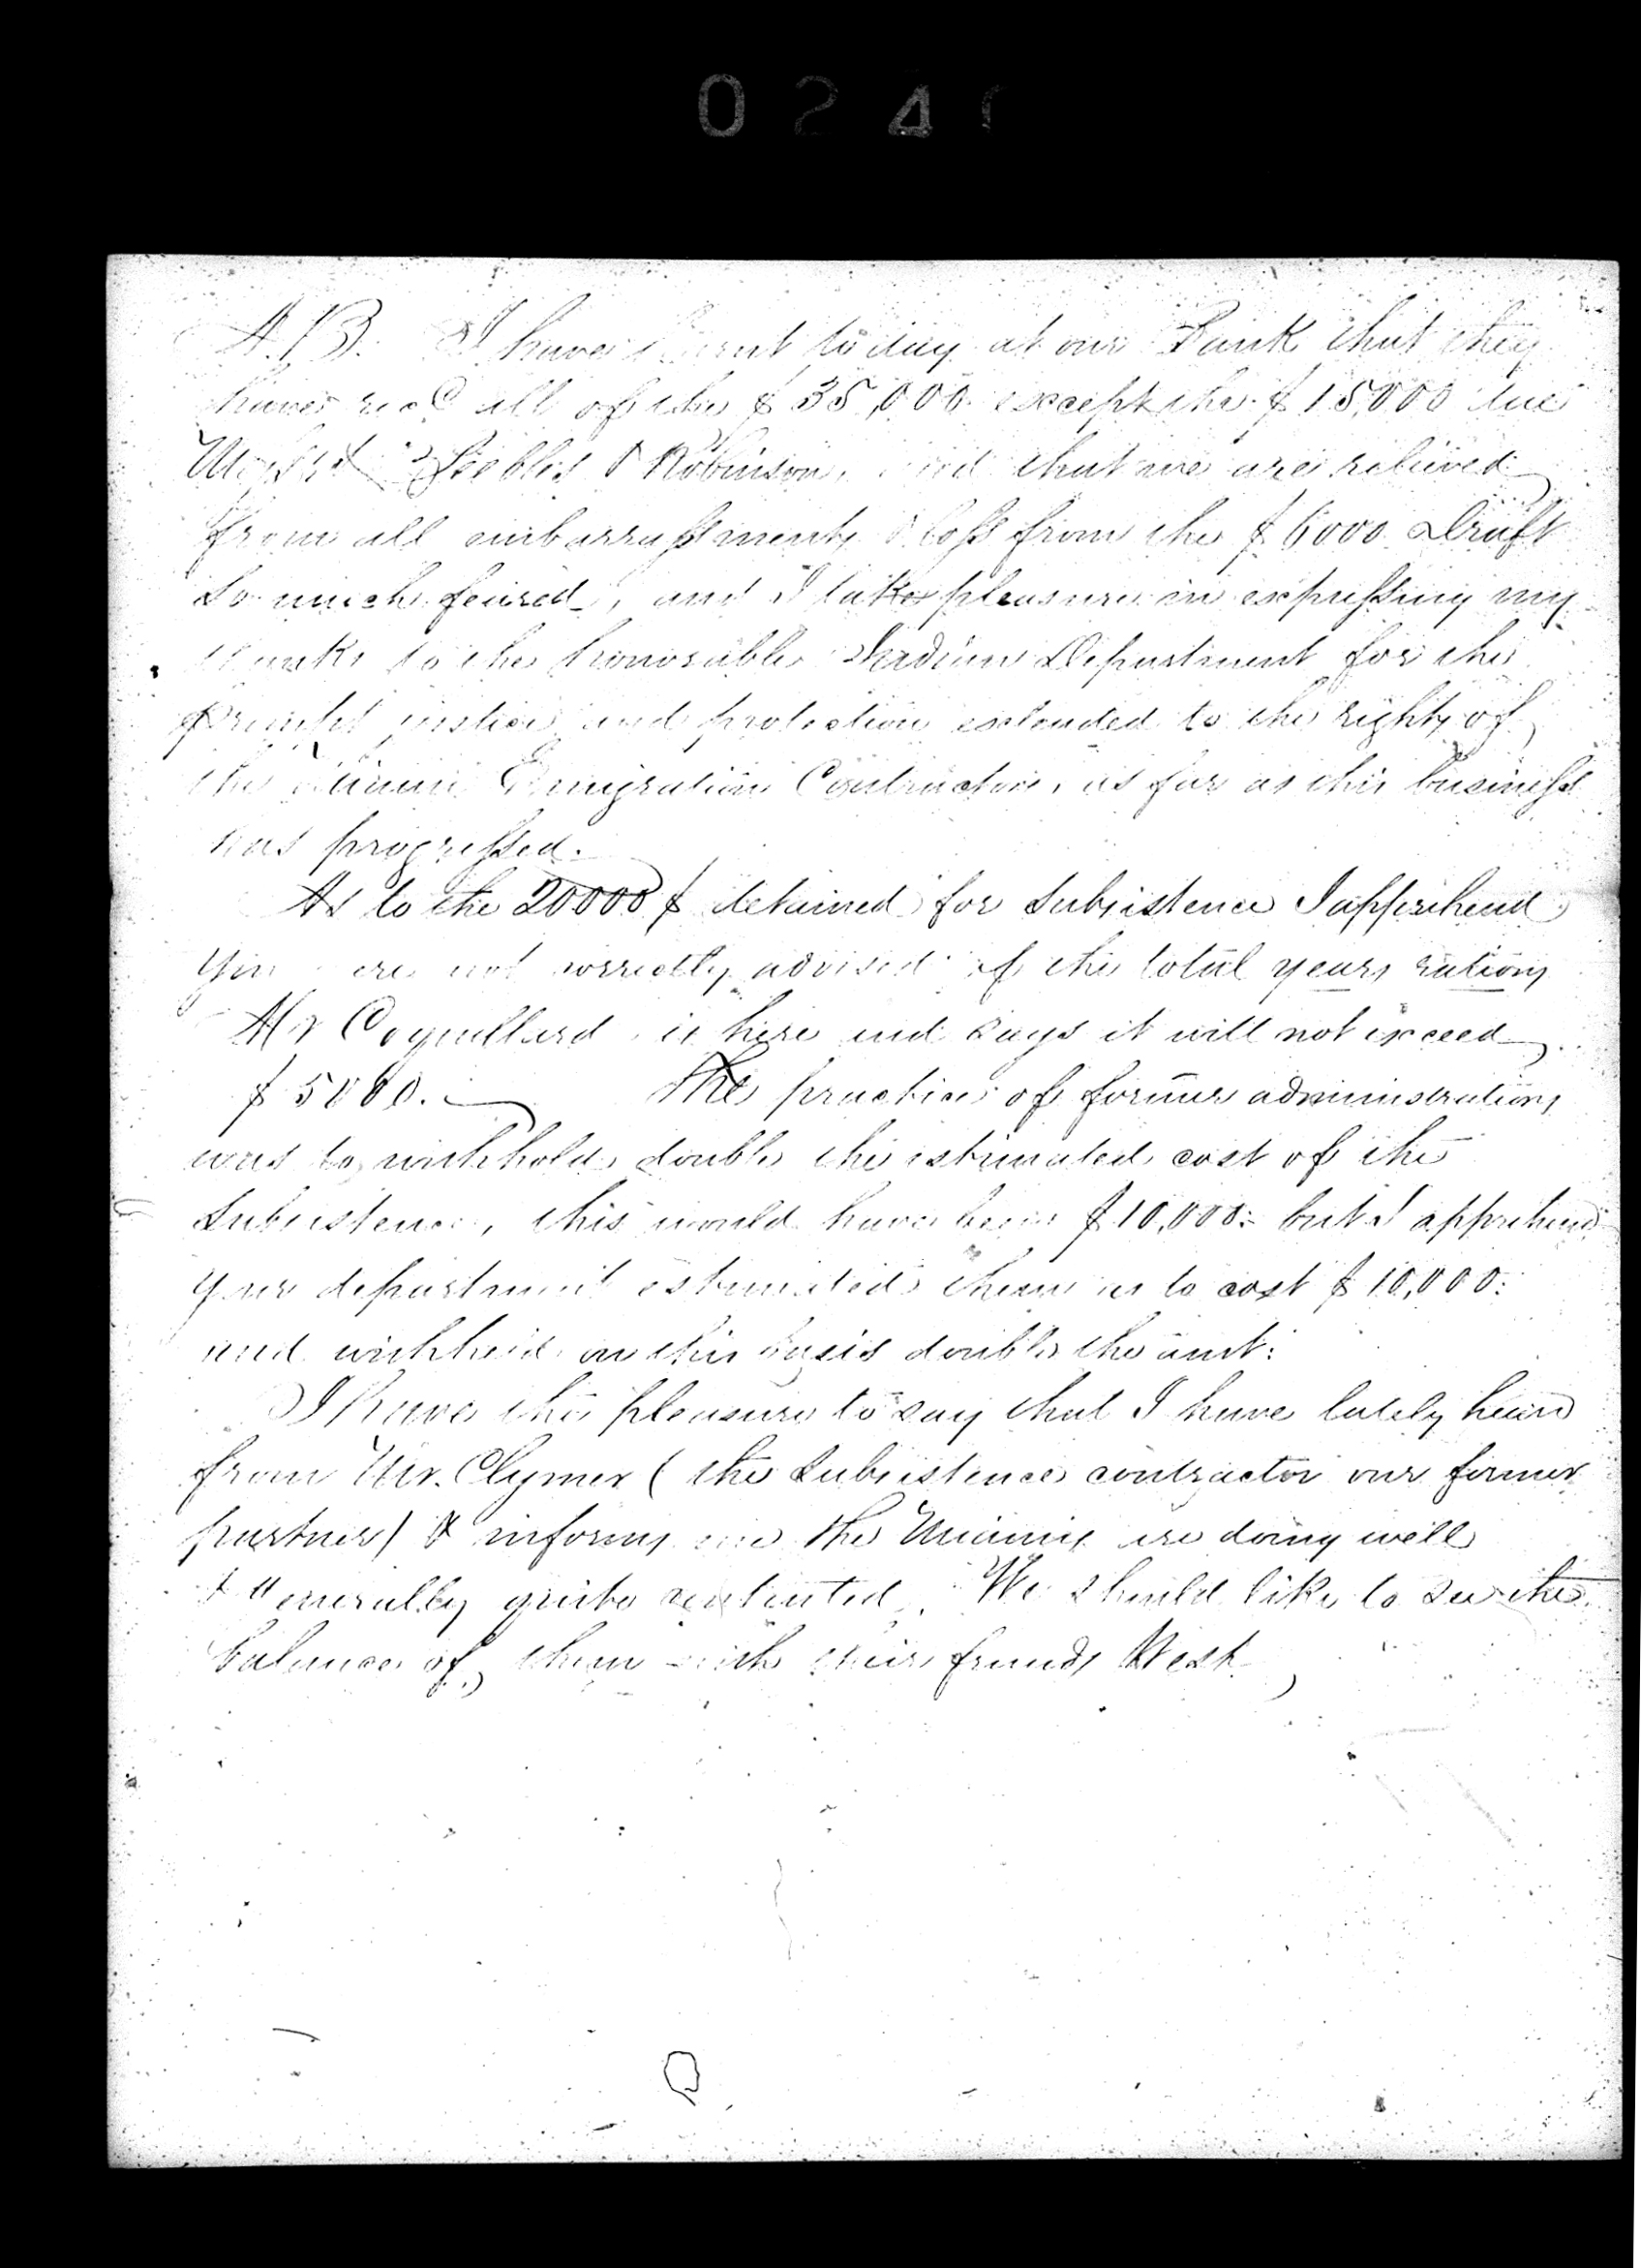 024
N.B. I have learnt to day at our Bank that they
have recd all of the $35,000 except the $15,000 due
Peebles & Robinson, and that we are relieved
from all embarrassments & loss from the $6000 Draft
so much feared, and I take pleasure in expressing my
thanks to the honorable Indian Department for the
prompt justice and protection extended to the rights of
the Miami Emigration Contractors, as far as this business
has progressed.
As to the 20000$ detained for Subsistence I apprehend
you are not correctly advised of the total years rations
Mr Coquillard is here and says it will not exceed
$5000. The practice of former administrations
was to withhold double the estimated cost of the
Subsistence, this would have been $10,000: but I apprehend
your department estimated them as to cost $10,000:
and withheld on this basis double the amt:
I have the pleasure to say that I have lately heard
from Mr. Clymer (the Subsistence contractor our former
partner) & informs me the Miamis are doing well
& generally quite contented. We should like to see the
balance of them with their friends West